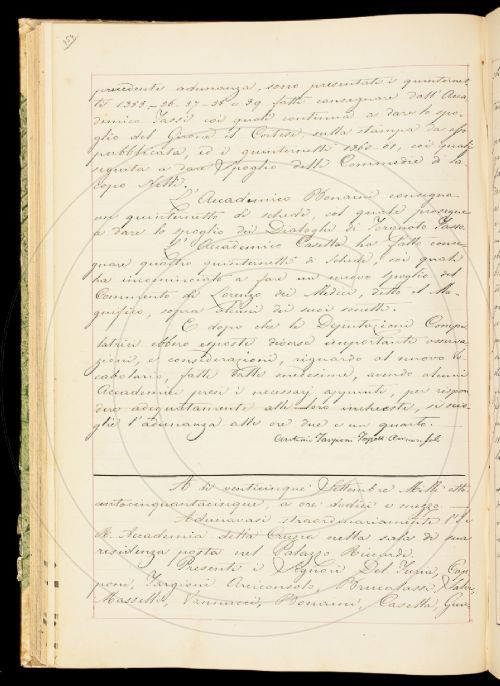 354
precedente adunanza, sono presentati i quinternet-
ti 1355-56-57-58 e 59 fatti consegnare dall'Acca-
demico Tassi coi quali continua a dare lo spo-
glio del Girone il Cortese sulla stampa da esso
pubblicata, ed i quinternetti 1360 61, coi quali
seguita a dare Spoglio delle Commedie di Ja-
copo Nelli.
L'Accademico Bonaini consegna
un quinternetto di schede, col quale prosegue
a dare lo spoglio dei Dialoghi di Torquato Tasso.
L'Accademico Casella ha fatti conse-
gnare quattro quinternetti di schede, coi quali
ha incominciato a fare un nuovo spoglio del
Commento di Lorenzo dei Medici, detto il Ma-
gnifico, sopra alcuni di suoi sonetti.
E dopo che le Deputazioni Compi-
latrici ebbero esposte diverse importanti osserva-
zioni, e considerazioni, riguardo al nuovo Vo-
cabolario, fatte dalle medesime, avendo alcuni
Accademici presi i necessarj appunti, per rispon-
dere adeguatamente alle loro inchieste, si sciol-
gie l'adunanza alle ore due e un quarto.
Antonio Targioni Tozzetti
A dì venticinque Settembre Mille otto-
centocinquantacinque, a ore dodici e mezzo
Adunavasi straordinariamente l'I. e
R. Accademia della Crusca nella sala di sua
residenza posta nel Palazzo Riccardi.
Presenti i Signori Del Furia, Cap-
poni, Targioni Arciconsolo, Brucalassi, Valeri,
Masselli, Vannucci, Bonaini, Casella, Gua-